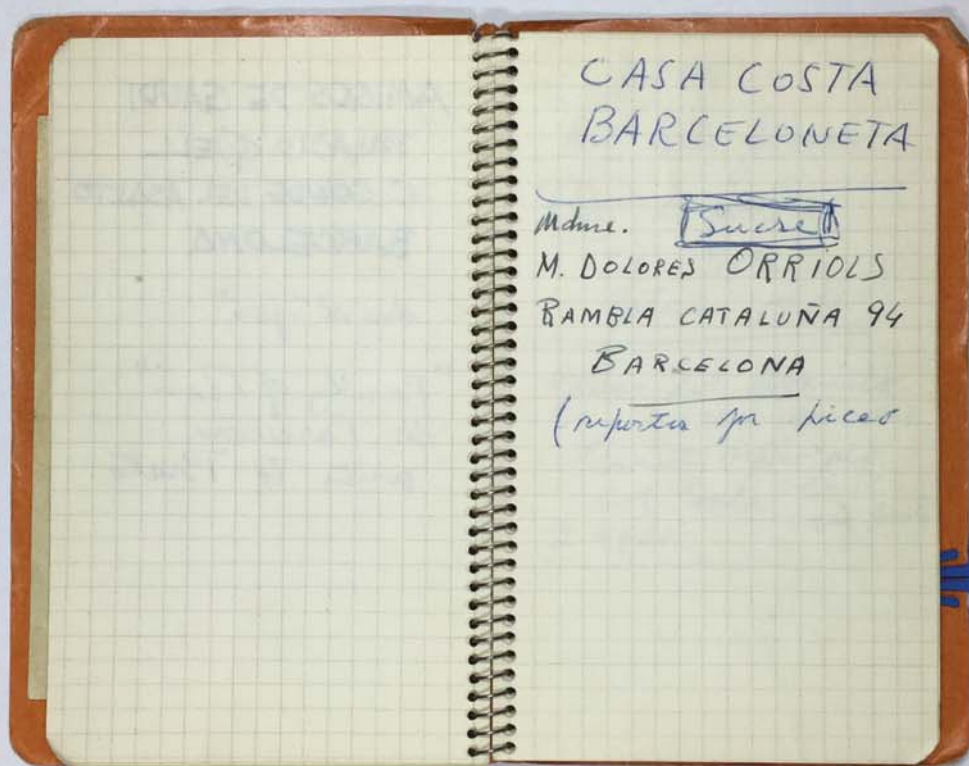 CASA COSTA
BARCELONETA
Mdme. Sucre
M. DOLORES ORRIOLS
RAMBLA CATALUÑA 94
BARCELONA